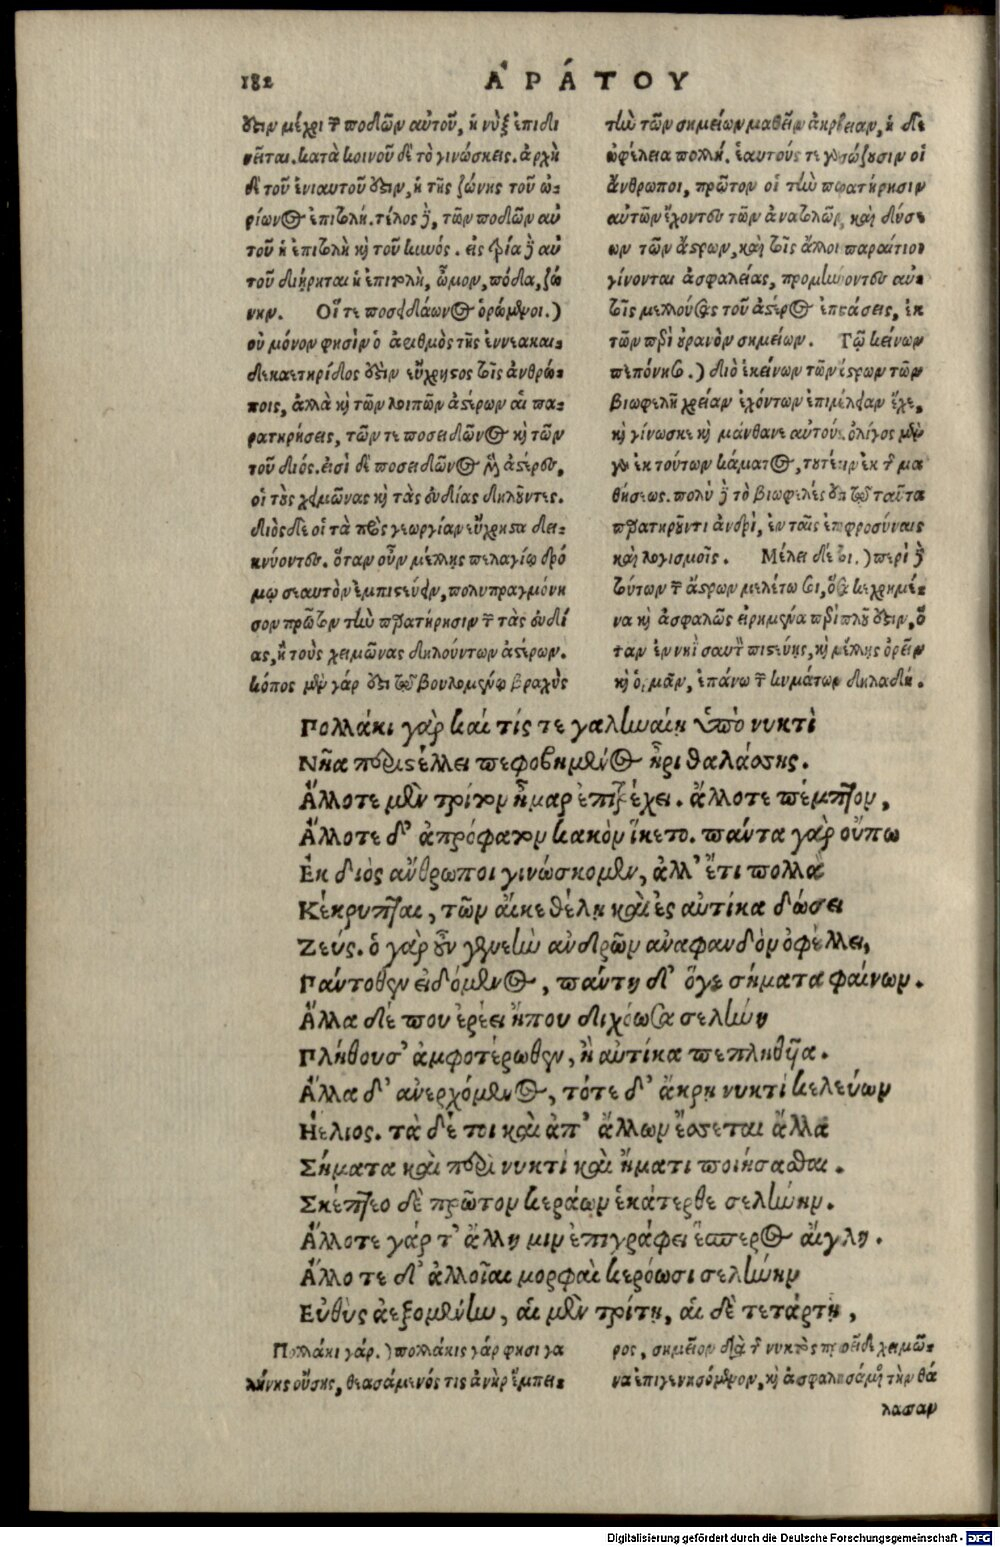 182
ἈΡΆΤΟΥ
ὅθεν μέχρι τῶν ποδῶν αὐτοῦ, ἡ νὺξ ἐπιδι
νεῖται. κατὰ κοινοῦ δὲ τὸ γινώσκεις. ἀρχὴ
δὲ τοῦ ἐνιαυτοῦ ἐστιν, ἡ τῆς ζώνης τοῦ ὠ-
ρίωνος ἐπιτολή. τέλος δὲ, τῶν ποδῶν αὐ
τοῦ ἡ ἐπιτολὴ καὶ τοῦ κυνός. εἰς τρία δὲ αὐ
τοῦ διῄρηται ἡ ἐπιτολὴ, ὦμον, πόδα, ζώ
νην. Οἵ τε ποσειδάωνος ὁρώμενοι.)
οὐ μόνον φησὶν ὁ ἀριθμὸς τῆς ἐννεακαι-
δεκαετηρίδος ἐστὶν εὔχρηστος τοῖς ἀνθρώ-
ποις, ἀλλὰ καὶ τῶν λοιπῶν ἀστέρων αἱ πα-
ρατηρήσεις, τῶν τε ποσειδῶνος καὶ τῶν
τοῦ διός. εἰσὶ δὲ ποσειδῶνος μὲν ἀστέρες,
οἱ τοὺς χειμῶνας καὶ τὰς εὐδίας δηλοῦντες.
διὸς δὲ οἱ τὰ πρὸς γεωργίαν εὔχρηστα δει-
κνύοντες. ὅταν οὖν μέλλῃς πελαγίῳ δρό
μῳ σεαυτὸν ἐμπιστεύειν, πολυπραγμόνη
σον πρῶτον τὴν παρατήρησιν τῶν τὰς εὐδί
ας, ἢ τοὺς χειμῶνας δηλούντων ἀστέρων.
κόπος μὲν γάρ ἐστι τῷ βουλομένῳ βραχὺς
τὴν τῶν σημείων μαθεῖν ἀκρίβειαν, ἡ δὲ
ὠφέλεια πολλή. ἑαυτούς τε γὰρ σώζουσιν οἱ
ἄνθρωποι, πρῶτον οἱ τὴν παρατήρησιν
αὐτῶν ἔχοντες τῶν ἀνατολῶν, καὶ δύσε-
ων τῶν ἄστρων, καὶ τοῖς ἄλλοι παραίτιοι
γίνονται ἀσφαλείας, προμηνύοντες αὐ-
τοῖς μελλούσας τοῦ ἀέρος ἐπτάσεις, ἐκ
τῶν περὶ οὐρανὸν σημείων. Τῷ κείνων
πεπόνησο.) διὸ ἐκείνων τῶν ἄστρων τῶν
βιωφελῆ χρείαν ἐχόντων ἐπιμέλειαν ἔχε,
καὶ γίνωσκε καὶ μάνθανε αὐτούς. ὀλίγος μὲν
γὰρ ἐκ τούτων κάματος, τουτέστιν ἐκ τῆς μα
θήσεως. πολὺ δὲ τὸ βιωφελές ἐστι τῷ ταῦτα
παρατηροῦντι ἀνδρὶ, ἐν ταῖς ἐπιφροσύναις
καὶ λογισμοῖς. Μέλει δέ τοι.) περὶ δὲ
τούτων τῶν ἄστρων μελέτω σοι, ὅσα κεχρημέ-
να καὶ ἀσφαλῶς εἰρημένα περὶ πλοῦ ἐστιν, ὅ
ταν ἐν νηῒ σαυτὸν πιστεύῃς, καὶ μέλλῃς ὁρᾷν
καὶ ὁρμᾷν, ἐπάνω τῶν κυμάτων δηλαδή.
Πολλάκι γὰρ καί τίς τε γαληναίῃ ὑπὸ νυκτὶ
Νῆα περιστέλλει πεφοβημένος ἦρι θαλάσσης.
Ἄλλοτε μὲν τρίτον ἦμαρ ἐπιτρέχει. ἄλλοτε πέμπτον,
Ἄλλοτε δ' ἀπρόφατον κακὸν ἵκετο. πάντα γὰρ οὔπω
Ἐκ διὸς ἄνθρωποι γινώσκομεν, ἀλλ' ἔτι πολλὰ
Κέκρυπται, τῶν αἴκε θέλῃ καὶ ἐς αὐτίκα δώσει
Ζεύς. ὁ γὰρ οὖν γενεὴν ἀνδρῶν ἀναφανδὸν ὀφέλλει,
Πάντοθεν εἰδόμενος, πάντῃ δ' ὅγε σήματα φαίνων.
Ἄλλα δέ που ἐρέει ἤπου διχόωσα σελήνη
Πλήθουσ' ἀμφοτέρωθεν, ἢ αὐτίκα πεπληθῦα.
Ἄλλα δ' ἀνερχόμενος, τότε δ' ἄκρῃ νυκτὶ κελεύων
Ἠέλιος. τὰ δέ τοι καὶ ἀπ' ἄλλων ἔσσεται ἄλλα
Σήματα καὶ περὶ νυκτὶ καὶ ἤματι ποιήσασθαι.
Σκέπτεο δὲ πρῶτον κεράων ἑκάτερθε σελήνην.
Ἄλλοτε γάρ τ' ἄλλῃ μιν ἐπιγράφει ἕσπερος αἴγλῃ.
Ἄλλοτε δ' ἀλλοῖαι μορφαὶ κερόωσι σελήνην
Εὐθὺς ἀεξομένην, αἱ μὲν τρίτῃ, αἱ δὲ τετάρτῃ,
Πολλάκι γάρ.) πολλάκις γάρ φησι γα
λήνης οὔσης, θεασάμενός τις ἀνὴρ ἔμπει-
ρος, σημεῖον διὰ τῆς νυκτὸς περὶ δὲ χειμῶ-
να ἐπιγενησόμενον, καὶ ἀσφαλισάμενος τὴν θά
λασσαν
Digitalisierung gefördert durch die Deutsche Forschungsgemeinschaft - DFG